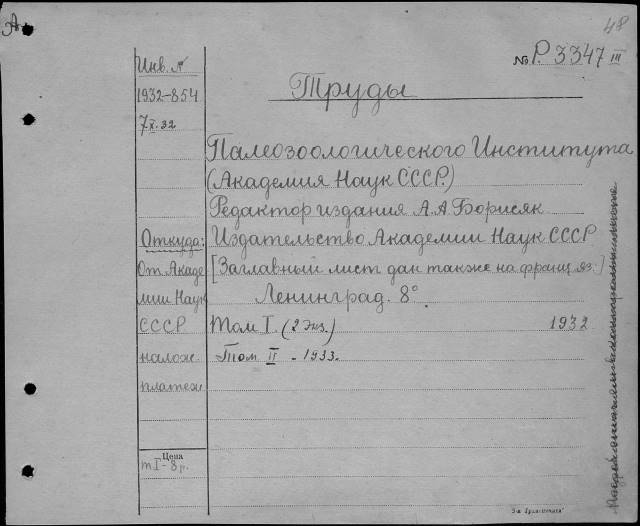 А
48
№ Р. 3347 III
Инв. №
1932-854
7 X. 32
Труды
Палеозоологического Института
(Академия Наук СССР.)
Редактор издания А.А Борисяк
Издательство Академии Наук СССР
[Заглавный лист дан также на франц. яз.)
Ленинград. 8°.
Том I. (2 экз.) 1932
Том II - 1933.
Откуда:
От Акаде
мии Наук
СССР
налож.
платеж
Цена
т I - 8 р.